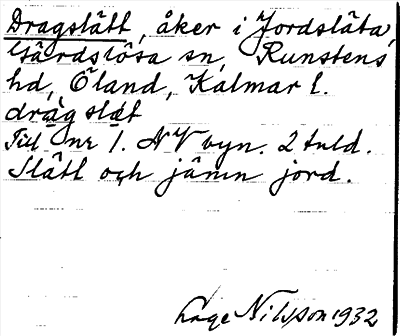 Dragslätt, åker i Jordsläta,
Gärdslösa sn, Runstens
hd, Öland, Kalmar l.
dràg slæt
Till nr 1. NV byn. 2 tnld.
Slätt och jämn jord.
Lage Nilsson 1932